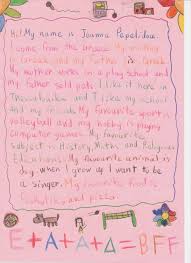 Hi! My name is Joanna Papelidou.
I come from the Greece. My mother
is Greek and my father is Greek.
My mother works in a play school and
my father sold pots. I like it here in
Thessaloniki and I like my school
and my friends. My favourite sport is
volleyball and my hobby is playing
computer games. My favourite
subject is History, Maths and Religious
Educational. My favourite animal is
dog. When I grow up I want to be
a singer. My favourite food is
and pizza.
E+A+A+Δ=BFF